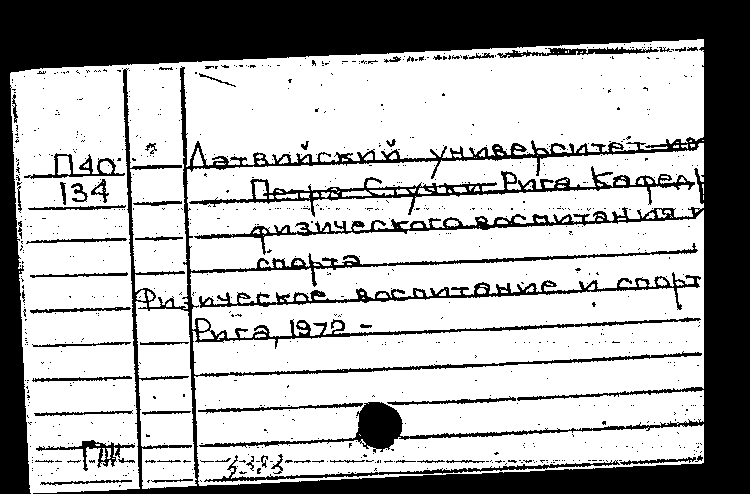 П40
134
Латвийский университет им
Петра Стучки Рига. Кафедр
физического воспитания и
спорта
Физическое воспитание и спорт
Рига, 1972 -